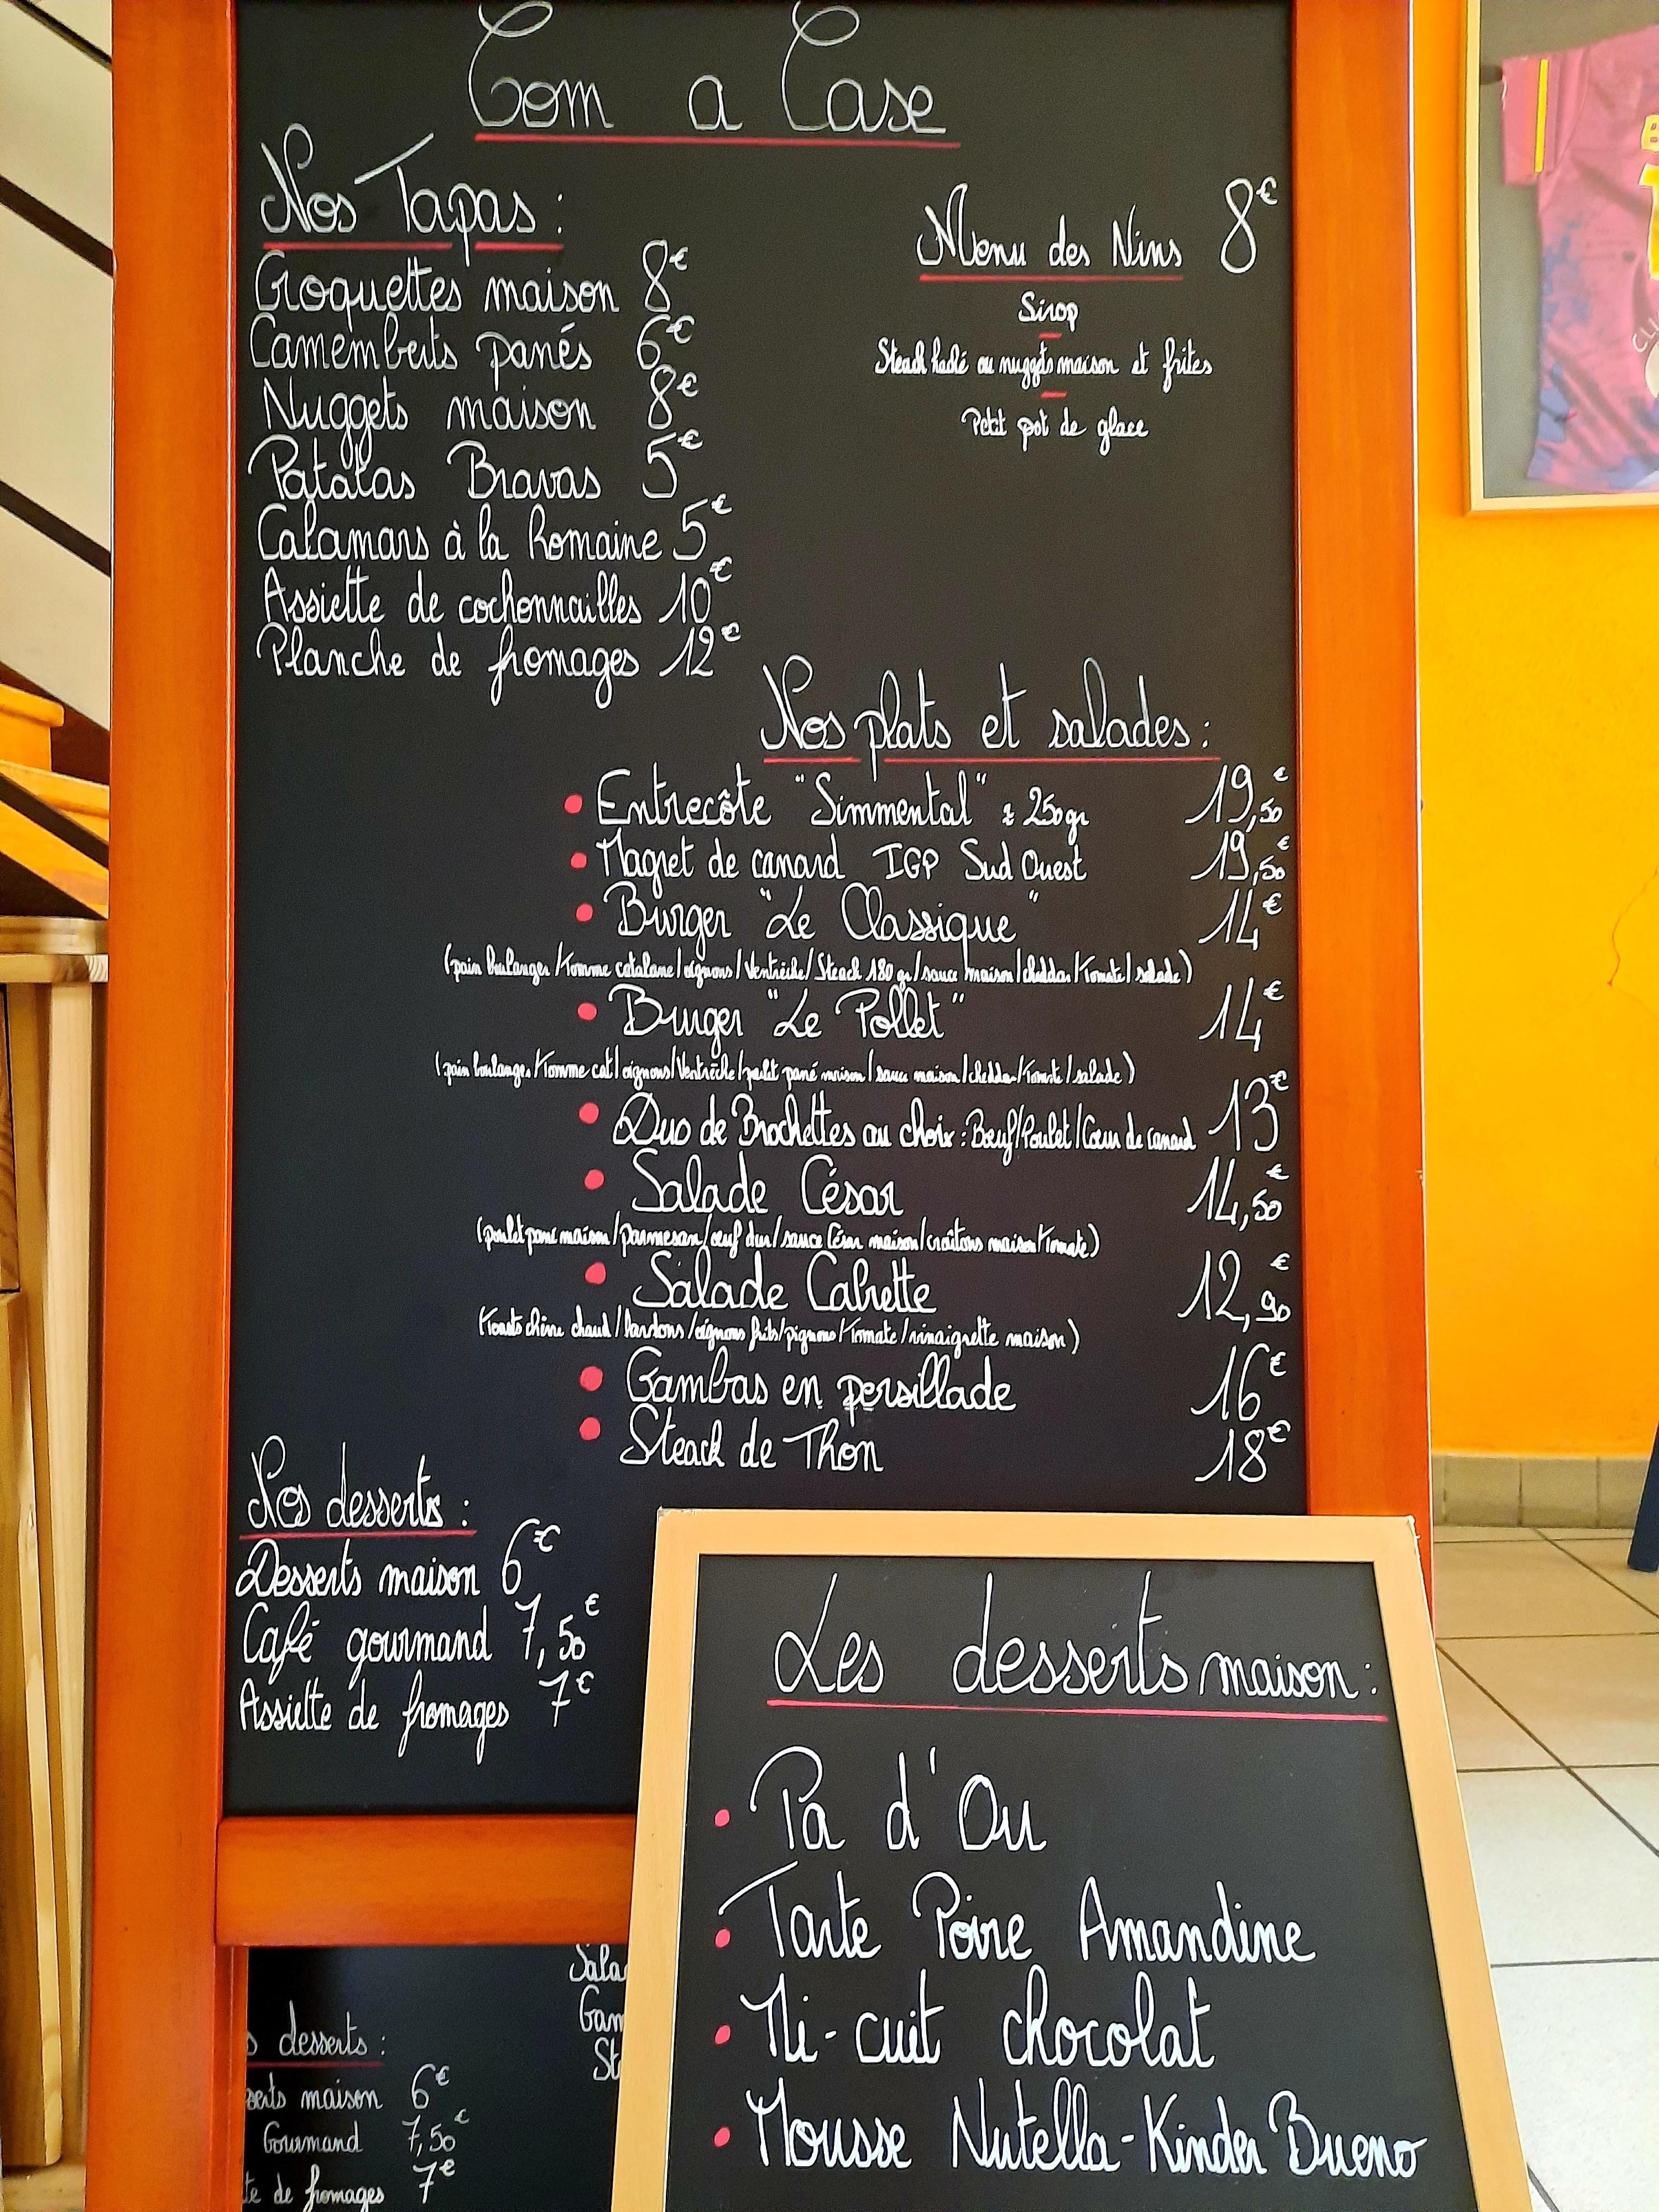 Com a Case
Nos Tapas :
Croquettes maison 8€
Camemberts panés 6€
Nuggets maison 8€
Patatas Bravas 5€
Calamars à la Romaine 5€
Assiette de cochonnailles 10€
Planche de fromages 12€
Menu des Nins 8€
Sirop
Steack haché ou nuggets maison et frites
Petit pot de glace
Nos plats et salades :
Entrecôte "Simmental" ± 250gr 19,50€
Magret de canard IGP Sud Ouest 19,50€
Burger "Le Classique" 14€
(pain boulanger/Tomme catalane/oignons/Ventrèche/Steack 180 gr/sauce maison/cheddar/Tomate/salade)
Burger "Le Pollet" 14€
(pain boulanger/Tomme cat/oignons/Ventrèche/poulet pané maison/sauce maison/cheddar/Tomate/salade)
Duo de Brochettes au choix : Bœuf/Poulet/Cœur de canard 13€
Salade César 14,50€
(poulet pané maison/parmesan/œuf dur/sauce César maison/croûtons maison/Tomate)
Salade Cabrette 12,90€
(Toasts chèvre chaud/lardons/oignons frits/pignons/Tomate/vinaigrette maison)
Gambas en persillade 16€
Steack de Thon 18€
Nos desserts :
Desserts maison 6€
Café gourmand 7,50€
Assiette de fromages 7€
Les desserts maison :
Pa d'Ou
Tarte Poire Amandine
Mi-cuit chocolat
Mousse Nutella-Kinder Bueno
Sala
Gam
St
s desserts :
serts maison 6€
Gourmand 7,50€
te de fromages 7€